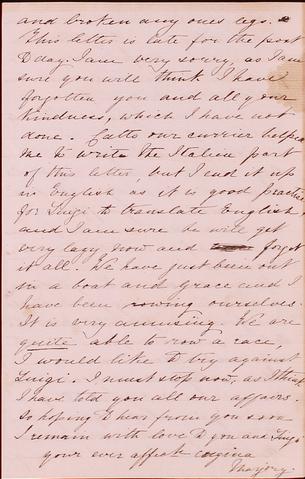 and broken any ones legs.
This letter is late for the post
D day. I am very sorry, as I am
sure you will think I have
forgotten you and all your
kindness, which I have not
done. Catto our currier helped
me to write the Italian part
of this letter, but I end it up
in English as it is good practice
for Luigi to translate English
and I am sure he will get
very lazy now and forget
it all. We have just been out
in a boat and Grace and I
have been rowing ourselves.
It is very amusing. We are
quite able to row a race,
I would like D try against
Luigi. I must stop now, as I think
I have told you all our affairs.
So hoping D hear from you soon
I remain with love D you and Luigi
your ever affect cugina
Marjory.